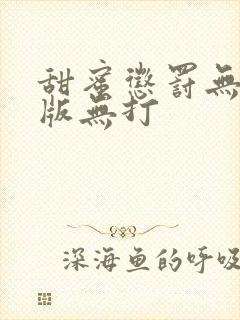 甜蜜懲罰無
版無打
深海鱼的呼吸